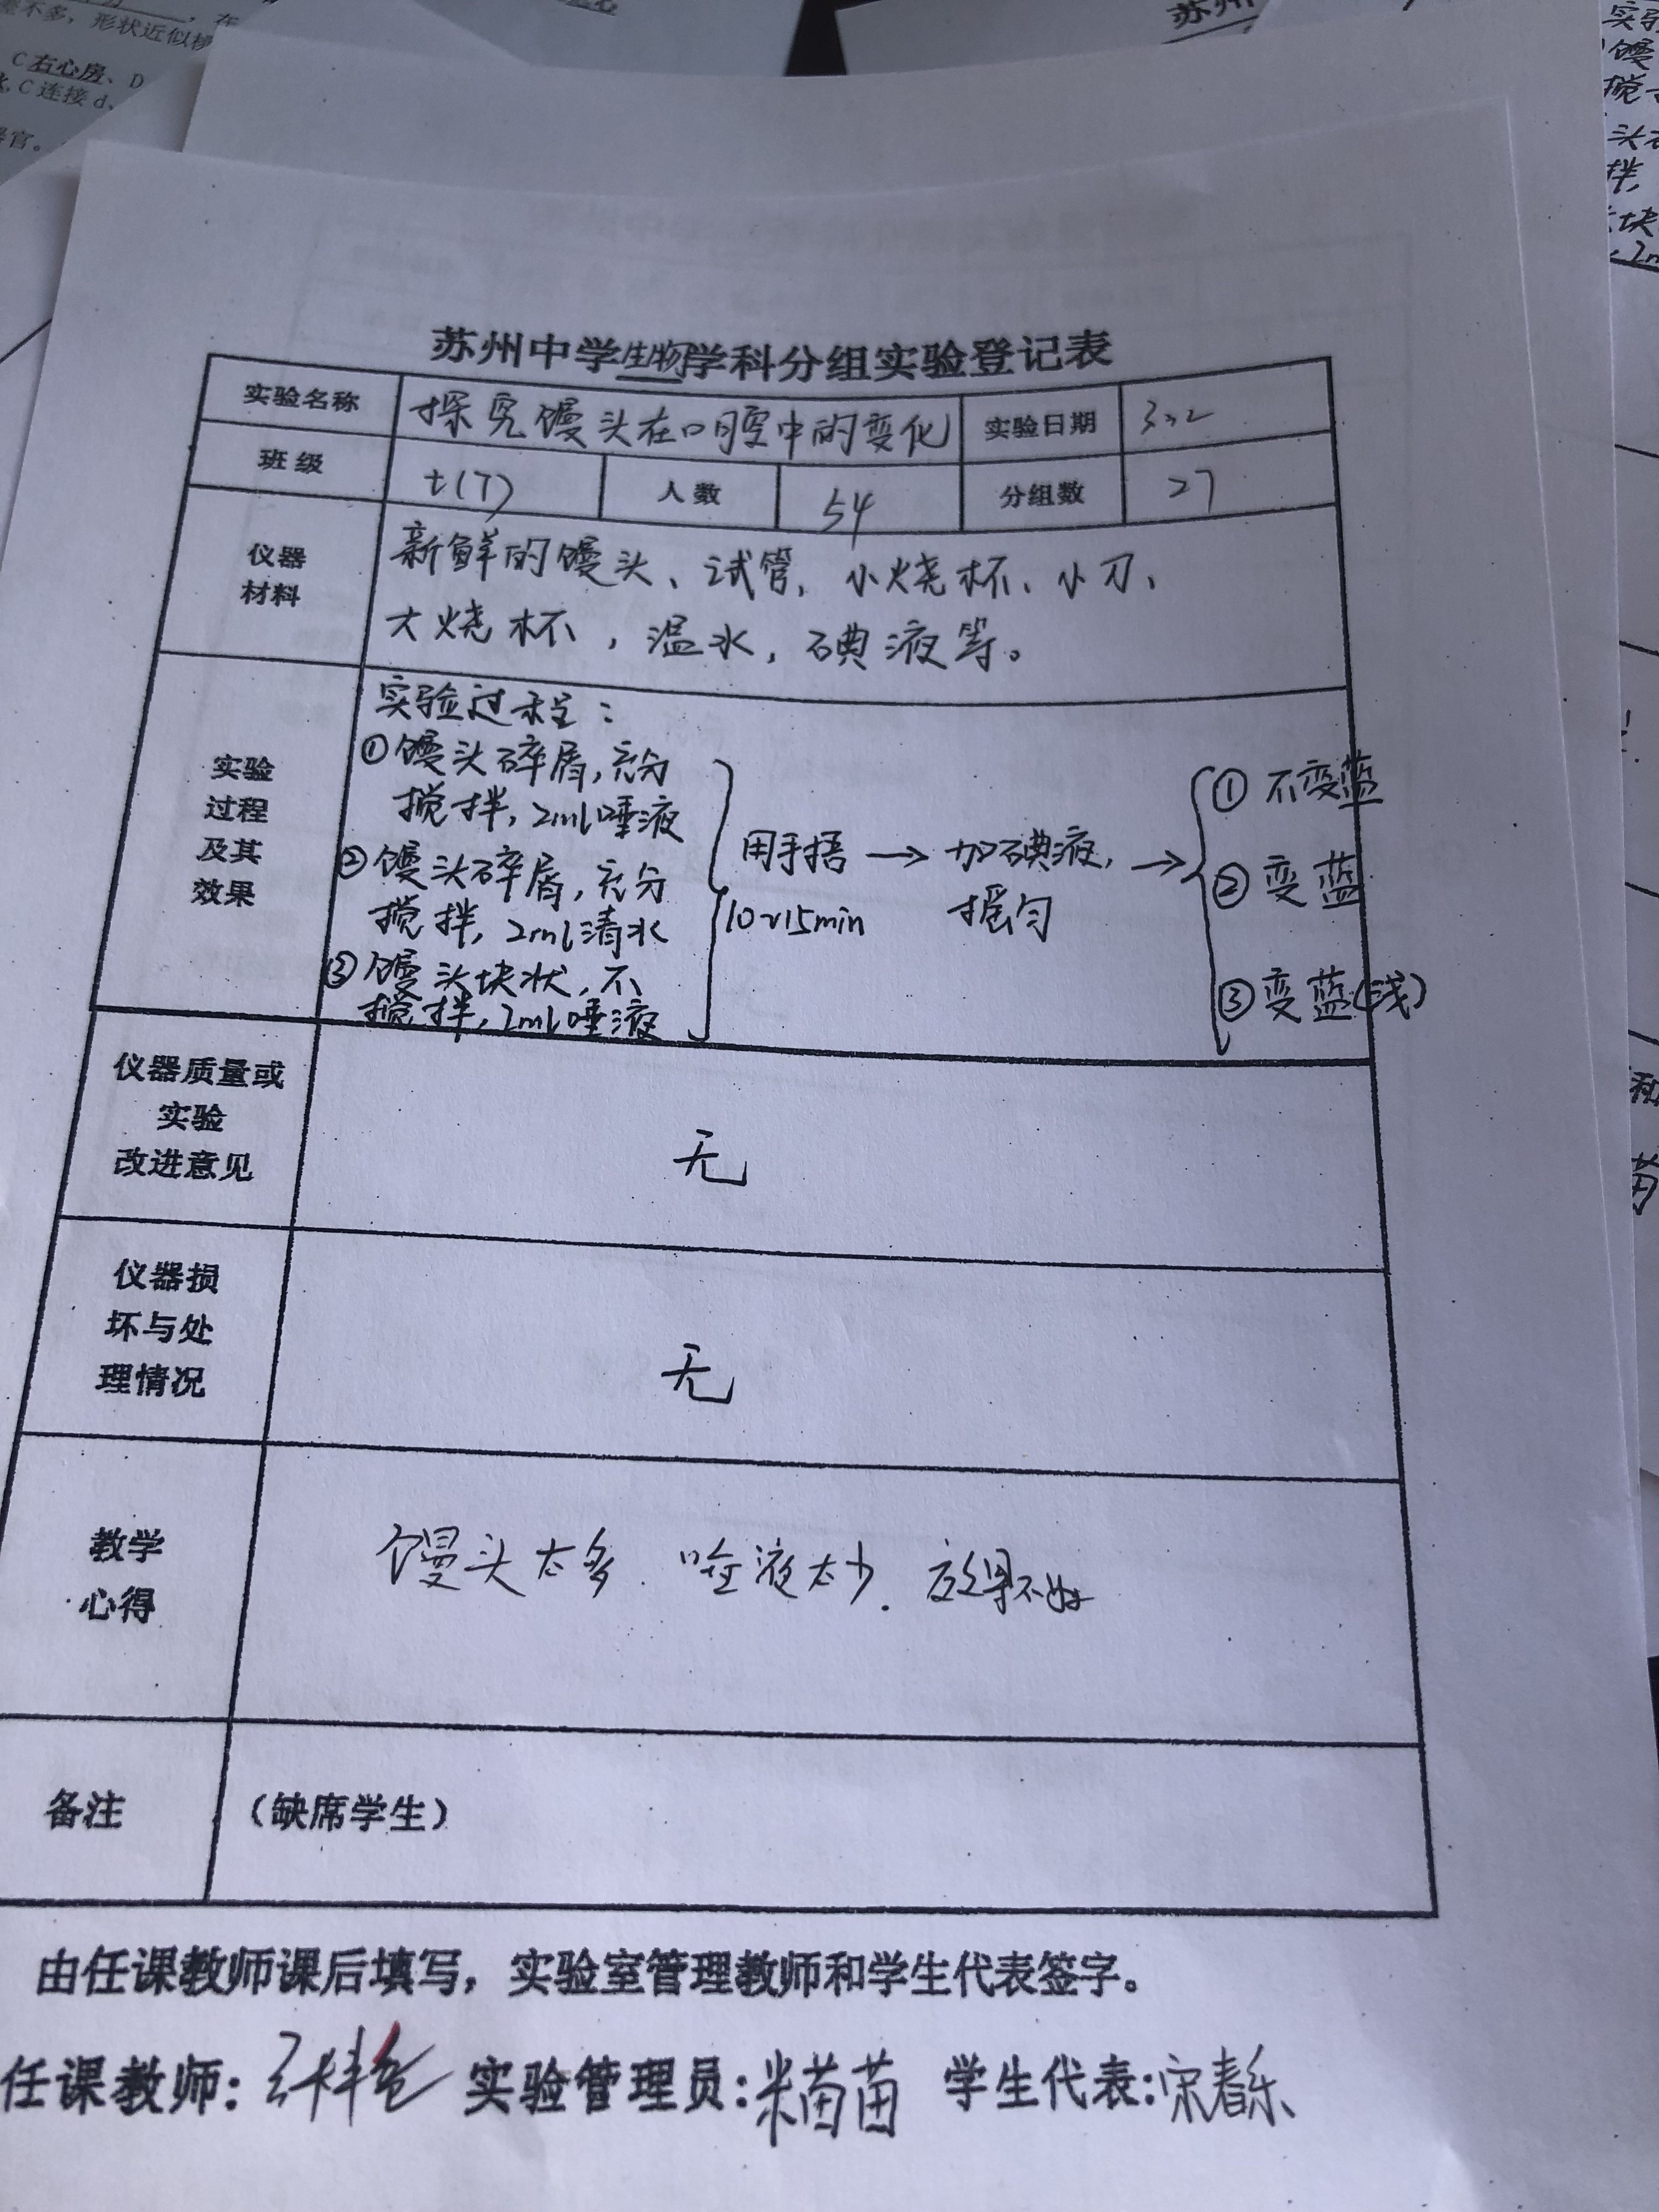 苏州中学生物学科分组实验登记表
实验名称 探究馒头在口腔中的变化 实验日期 3.2
班级 七(7) 人数 54 分组数 27
仪器材料 新鲜的馒头、试管、小烧杯、小刀、
大烧杯，温水，碘液等。
实验过程及其效果
实验过程：
①馒头碎屑,充分
搅拌,2ml唾液
②馒头碎屑,充分
搅拌,2ml清水
③馒头块状,不
搅拌,2ml唾液
用手捂 → 加碘液, →
10~15min 摇匀
① 不变蓝
② 变蓝
③ 变蓝(浅)
仪器质量或
实验
改进意见
无
仪器损
坏与处
理情况
无
教学
心得
馒头太多.唾液太少.效果不好
备注 (缺席学生)
由任课教师课后填写，实验室管理教师和学生代表签字。
任课教师: 实验管理员:米苗苗 学生代表:宋春乐
C右心房、D
C连接d、
官。
苏州